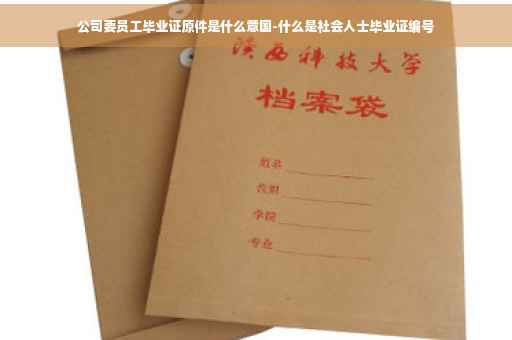 公司要员工毕业证原件是什么意图-什么是社会人士毕业证编号
陕西科技大学
档案袋
学院
专业